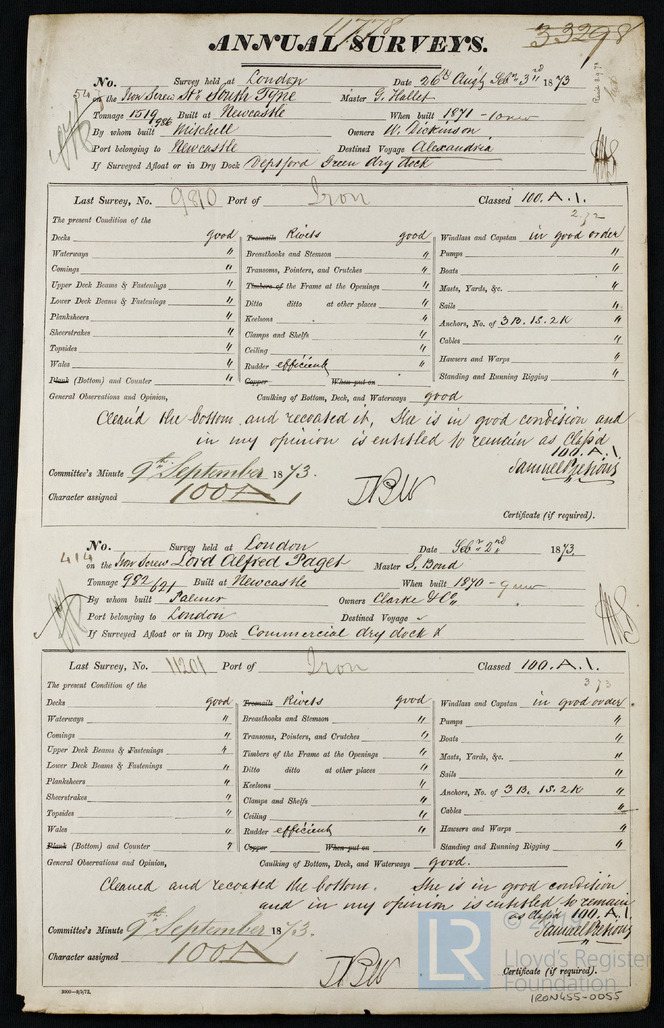 11778
33298
ANNUAL SURVEYS.
No. Survey held at London Date 26th Augt, Sepr 3rd 1873
54 on the Iron Screw Str South Tyne Master G. Hallet
Tonnage 1519 986 Built at Newcastle When built 1871 -
By whom built Mitchell Owners W. Dickinson
Port belonging to Newcastle Destined Voyage Alexandria
If Surveyed Afloat or in Dry Dock Deptford Green dry dock
Last Survey, No. 9810 Port of Iron Classed 100. A. 1.
2.72
The present Condition of the
Decks good Treenails Rivets good Windlass and Capstan in good order
Waterways " Breasthooks and Stemson " Pumps "
Comings " Transoms, Pointers, and Crutches " Boats "
Upper Deck Beams & Fastenings " Timbers of the Frame at the Openings " Masts, Yards, &c. "
Lower Deck Beams & Fastenings " Ditto ditto at other places " Sails "
Planksheers " Keelsons " Anchors, No. of 3 B. 1 S. 2 K "
Sheerstrakes " Clamps and Shelfs " Cables "
Topsides " Ceiling " Hawsers and Warps "
Wales " Rudder efficient Standing and Running Rigging "
Plank (Bottom) and Counter " Copper When put on
General Observations and Opinion, Caulking of Bottom, Deck, and Waterways good
Clean'd the bottom and recoated it, She is in good condition and
in my opinion is entitled to remain as Class'd
100. A. 1.
Committee's Minute 9th September 1873.
Character assigned 100 A 1
Certificate (if required).
No. Survey held at London Date Sepr 2nd 1873
414 on the Iron Screw Lord Alfred Paget Master S. Bond
Tonnage 982/621 Built at Newcastle When built 1870 -
By whom built Palmer Owners Clarke & Co
Port belonging to London Destined Voyage
If Surveyed Afloat or in Dry Dock Commercial dry dock
Last Survey, No. 11201 Port of Iron Classed 100. A. 1.
3 73
The present Condition of the
Decks good Treenails Rivets good Windlass and Capstan in good order
Waterways " Breasthooks and Stemson " Pumps "
Comings " Transoms, Pointers, and Crutches " Boats "
Upper Deck Beams & Fastenings " Timbers of the Frame at the Openings " Masts, Yards, &c. "
Lower Deck Beams & Fastenings " Ditto ditto at other places " Sails "
Planksheers " Keelsons " Anchors, No. of 3 B. 1 S. 2 K "
Sheerstrakes " Clamps and Shelfs " Cables "
Topsides " Ceiling " Hawsers and Warps "
Wales " Rudder efficient Standing and Running Rigging "
Plank (Bottom) and Counter " Copper When put on
General Observations and Opinion, Caulking of Bottom, Deck, and Waterways good.
Cleaned and recoated the bottom. She is in good condition
and in my opinion is entitled to remain
as Class'd 100. A. 1.
Committee's Minute 9th September 1873.
Character assigned 100 A 1
Certificate (if required).
3000—8/2/72.
© 2019
LR
Lloyd's Register
Foundation
IRON455-0055